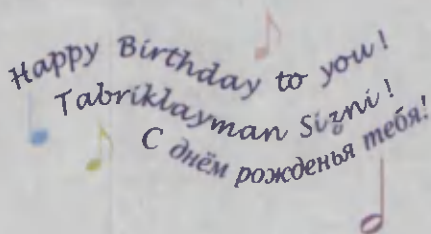 Happy Birthday to you!
Tabriklayman Sizni!
С днём рожденья тебя!